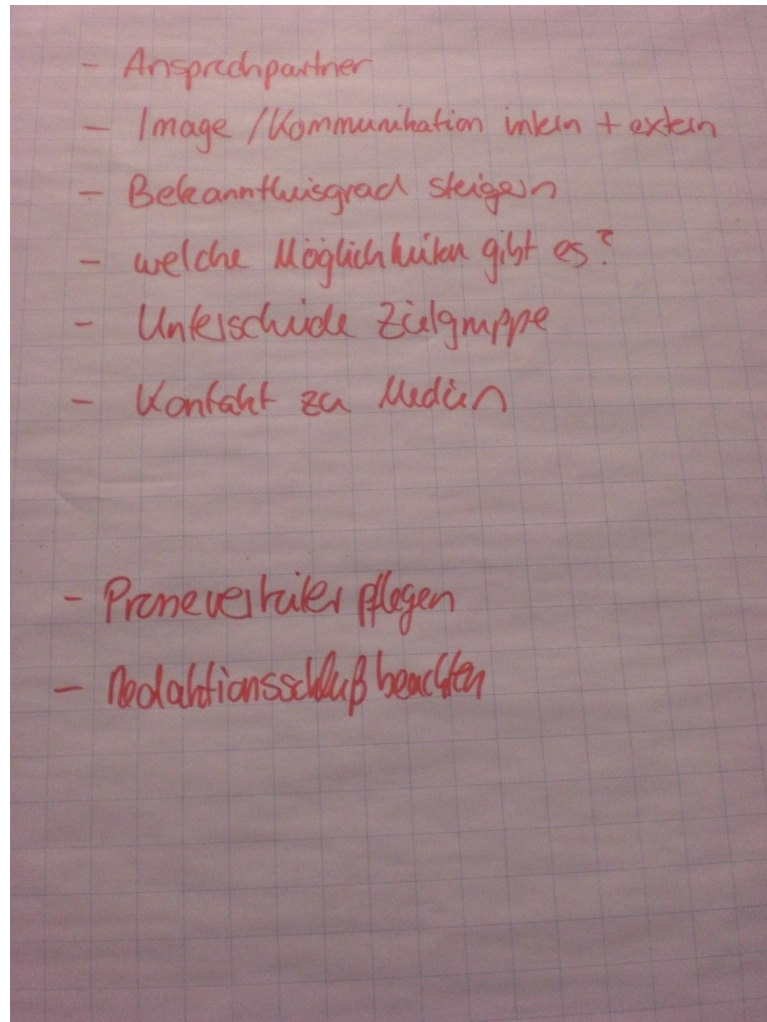 - Ansprechpartner
- Image / Kommunikation intern + extern
- Bekanntheitsgrad steigern
- welche Möglichkeiten gibt es?
- Unterschiede Zielgruppe
- Kontakt zu Medien
- Presseverteiler pflegen
- Redaktionsschluß beachten